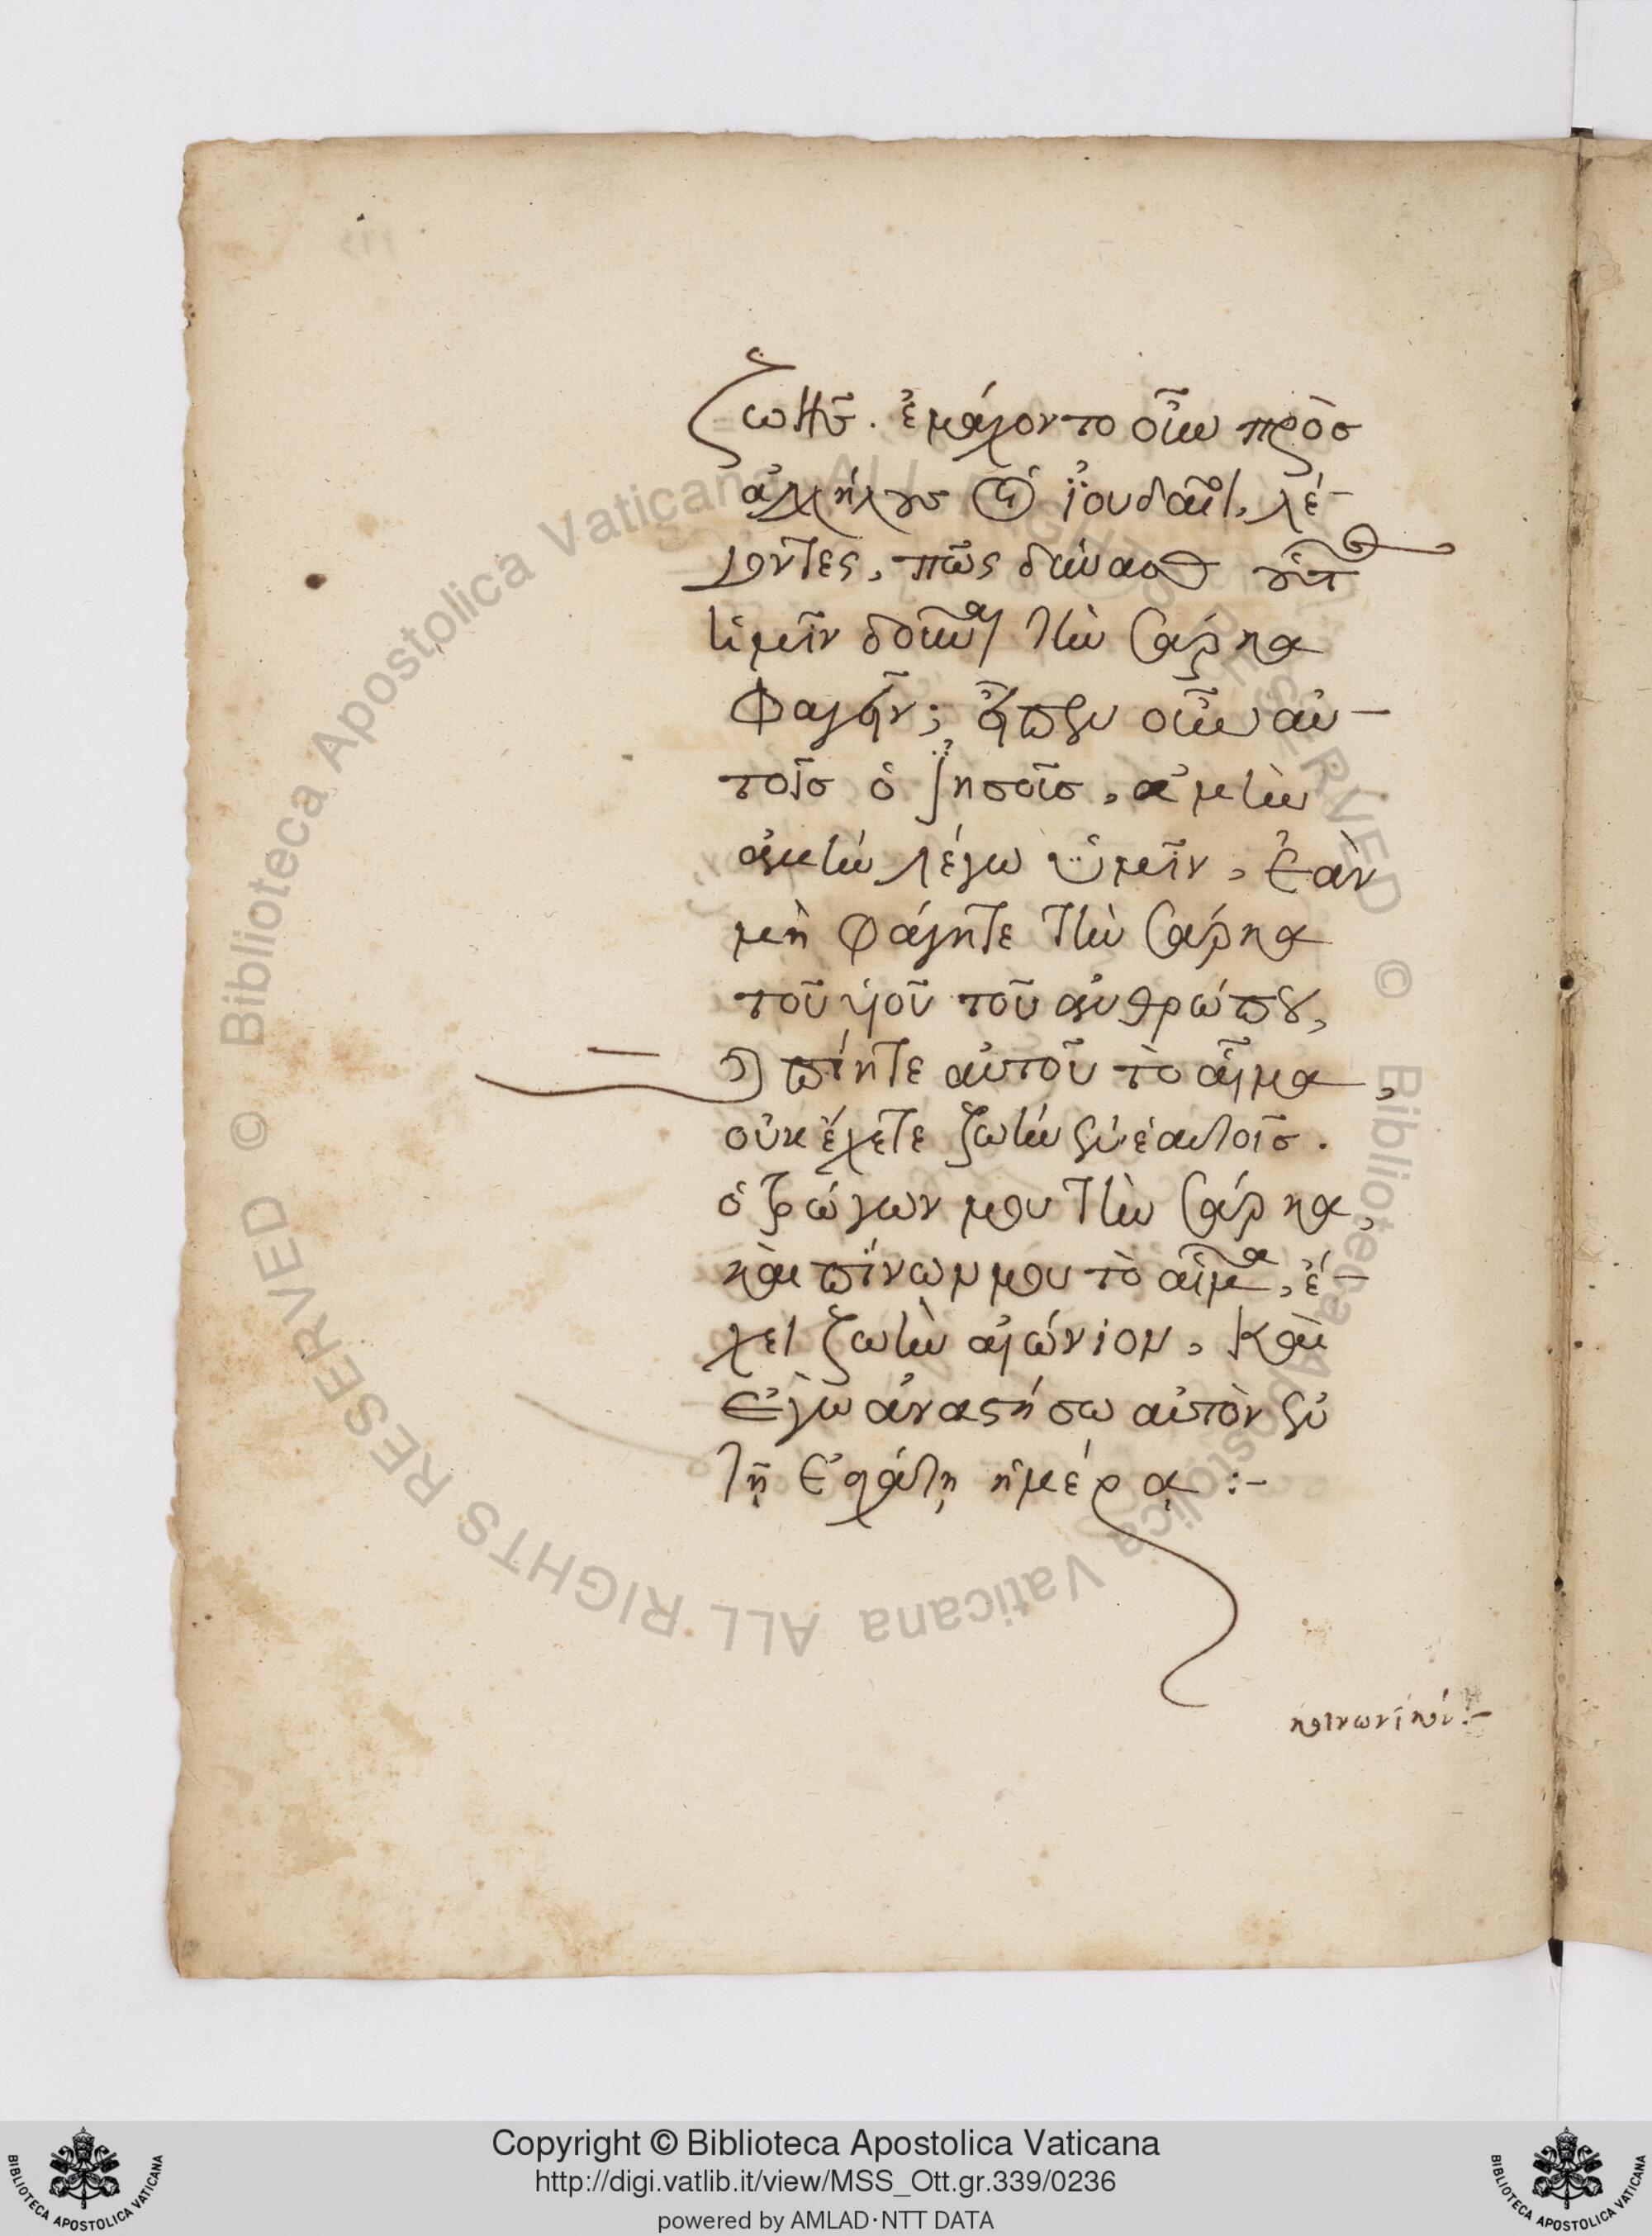 ζωῆς. ἐμάχοντο οὖν πρὸσ
ἀλλήλουσ οἱ ϊουδαῖοι, λέ-
γοντες, πῶς δύναται οὗτος
ἡμῖν δοῦναι τὴν σάρκα
φαγεῖν; εἶπεν οὖν αὐ-
τοῖσ ὁ ϊησοῦσ, ἀμὴν
ἀμὴν λέγω ὑμῖν, ἐὰν
μὴ φάγητε τὴν σάρκα
τοῦ υἱοῦ τοῦ ἀνθρώπου,
καὶ πίητε αὐτοῦ τὸ αἷμα,
οὐκ ἔχετε ζωὴν ἐν ἑαυτοῖσ.
ὁ τρώγων μου τὴν σάρκα,
καὶ πίνων μου τὸ αἷμα, ἔ-
χει ζωὴν αἰώνιον, καὶ
ἐγὼ ἀναστήσω αὐτὸν ἐν
τῇ ἐσχάτῃ ἡμέρᾳ :-
κοινωνικόν :-
© Biblioteca Apostolica Vaticana ALL RIGHTS RESERVED © Biblioteca Apostolica Vaticana ALL RIGHTS RESERVED
Copyright © Biblioteca Apostolica Vaticana
http://digi.vatlib.it/view/MSS_Ott.gr.339/0236
powered by AMLAD·NTT DATA
BIBLIOTECA APOSTOLICA VATICANA
BIBLIOTECA APOSTOLICA VATICANA